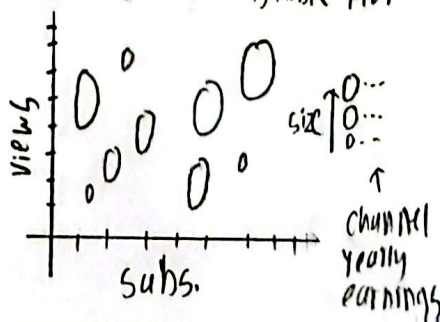 views
subs.
size
channel
yearly
earnings